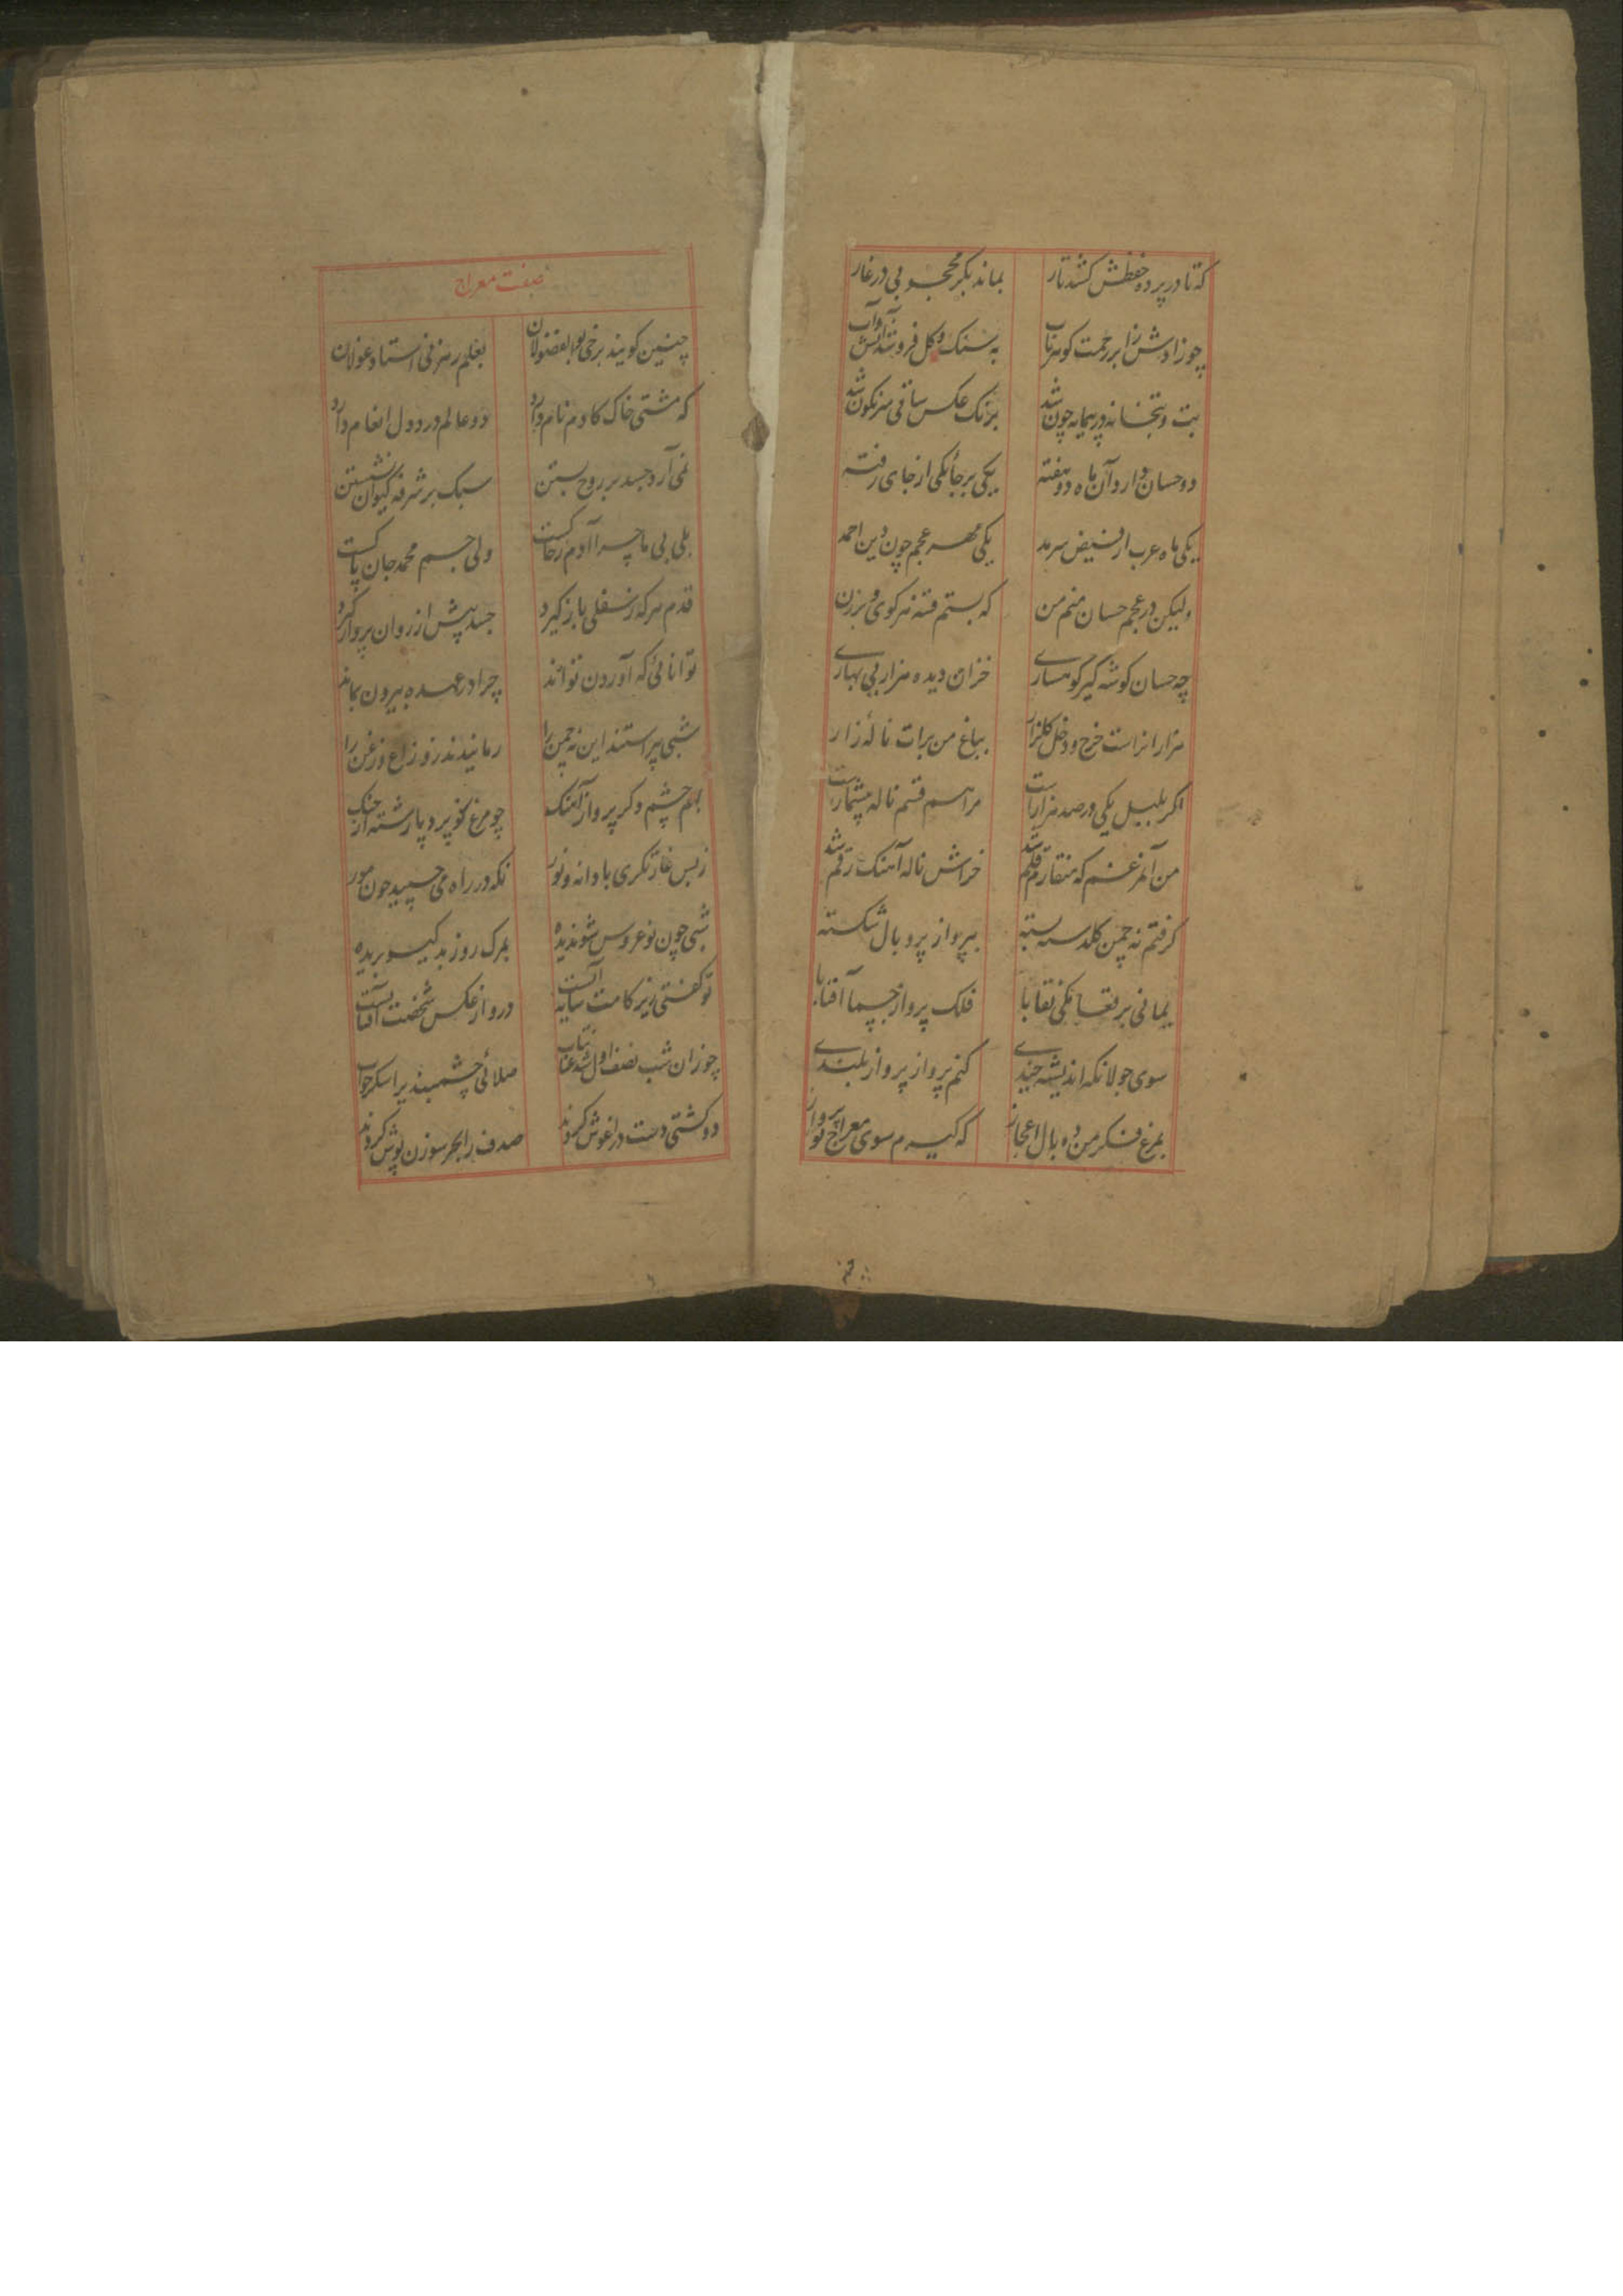 که تا در پرده حفظش کشد تار بماند بکر محجوبی در غار
چو زادش را بر رحمت کوهر ناب به سنک و کل فرو شد آتش و آب
بت و بتخانه در پیمانه چون شد برنک عکس ساقی سرنکون شد
دو حسان دارد آن ماه دو هفته یکی بر جا یکی از جای رفته
یکی ماه عرب از فیض سرمد یکی مهر عجم چون دین احمد
ولیکن در عجم حسان منم من که بستم فتنه هر کوی و برزن
چه حسان کوشه کیر کوهساری خزان دیده هزار بی بهاری
هزارانراست خرج و دخل کلزار بباغ من برات ناله زار
اکر بلبل یکی در صد هزارست مرا هم قسم ناله بیشمارست
من آن مرغم که منقارم قلم شد خراش ناله آهنک رقم شد
کرفتم نه چمن کلدسته بسته بپرواز پر و بال شکسته
یمانی برقعا مکی نقابا فلک پرواز جسما آفتابا
سوی جولانکه اندیشه چندی کنم پرواز پرواز بلندی
بمرغ فکر من ده بال اعجاز که کیرم سوی معراج تو پرواز
صفت معراج
چنین کویند برخی بوالفضولان بعلم رهزنی استاد غولان
که مشتی خاک کادم نام دارد دو عالم در دو دل انعام دارد
نمی آرد جسد بر روح بستن سبک بر شرفه کیوان نشستن
بلی بی ما چرا آدم ز خاکست ولی جسم محمد جان پاکست
قدم هر که ز سفلی باز کیرد جسد پیش از روان پرواز کیرد
توانائی که آوردن تواند چرا در عهده بیرون بماند
شبی پیراستند این نه چمن را رمانیدند زو زاغ و زغن را
بهم چشم و کر پرواز آهنک چو مرغ نو پر و پا رشته از چنک
ز بس غارتکری با دانه و نور نکه در راه می چسپید چون مور
شبی چون نوعروس شوندیده بمرک روز بد کیسو بریده
تو کفتی زیر کامت سایه آنست درو از عکس شخصت آفتابست
چو زان شب نصف اول شد عنان تاب صلائی چشمبندیرا سکر خواب
دو کشتی دست در آغوش کردند صدف را بحر سوزن پوش کردند